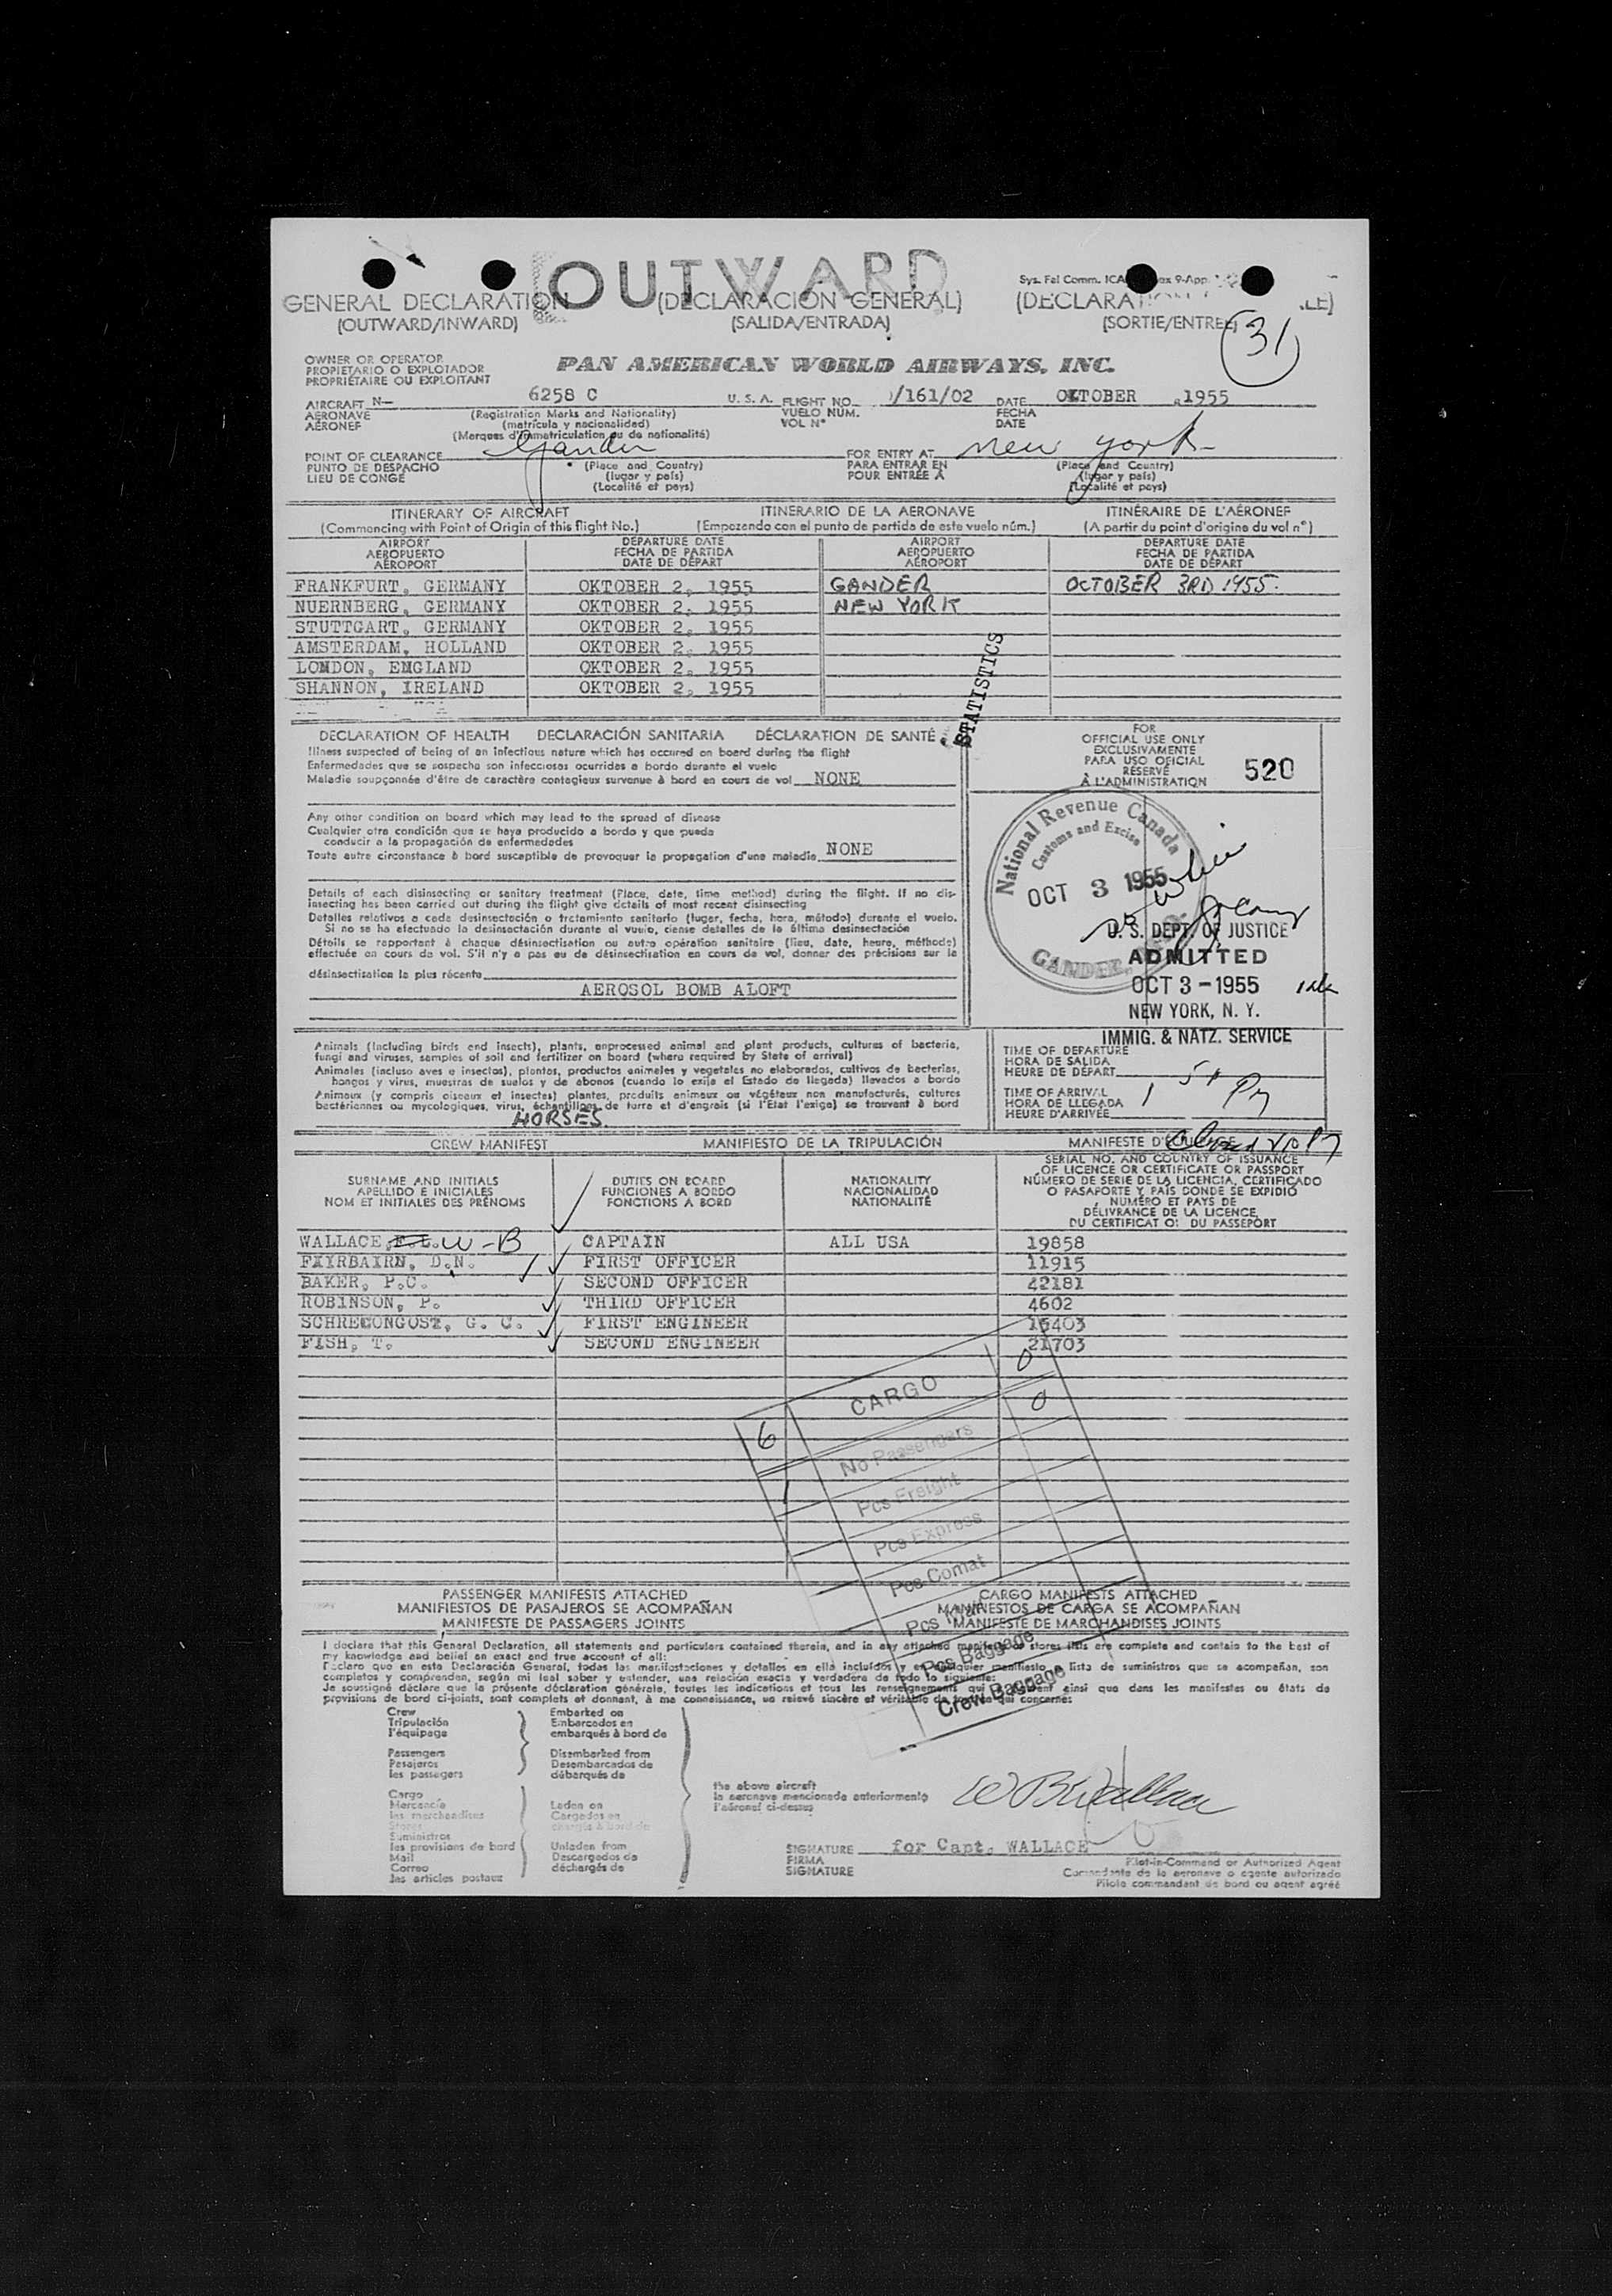 OUTWARD
Sys. Fal Comm. ICA ex 9-App.
GENERAL DECLARATION (DECLARACIÓN GENERAL) (DECLARATION LE)
(OUTWARD/INWARD) (SALIDA/ENTRADA) (SORTIE/ENTRÉE)
31
OWNER OR OPERATOR
PROPIETARIO O EXPLOTADOR
PROPRIÉTAIRE OU EXPLOITANT
PAN AMERICAN WORLD AIRWAYS, INC.
AIRCRAFT N— 6258 C U. S. A. FLIGHT NO. /161/02 DATE OKTOBER 1955
AERONAVE (Registration Marks and Nationality) VUELO NÚM. FECHA
AÉRONEF (matrícula y nacionalidad) VOL Nº DATE
(Marques d'immatriculation ou de nationalité)
POINT OF CLEARANCE Gander FOR ENTRY AT New York
PUNTO DE DESPACHO (Place and Country) PARA ENTRAR EN (Place and Country)
LIEU DE CONGÉ (lugar y país) POUR ENTRÉE À (lugar y país)
(Localité et pays) (Localité et pays)
ITINERARY OF AIRCRAFT ITINERARIO DE LA AERONAVE ITINÉRAIRE DE L'AÉRONEF
(Commencing with Point of Origin of this flight No.) (Empezando con el punto de partida de este vuelo núm.) (A partir du point d'origine du vol nº)
AIRPORT DEPARTURE DATE AIRPORT DEPARTURE DATE
AEROPUERTO FECHA DE PARTIDA AEROPUERTO FECHA DE PARTIDA
AÉROPORT DATE DE DÉPART AÉROPORT DATE DE DÉPART
FRANKFURT, GERMANY OKTOBER 2, 1955 GANDER OCTOBER 3RD 1955.
NUERNBERG, GERMANY OKTOBER 2, 1955 NEW YORK
STUTTGART, GERMANY OKTOBER 2, 1955
AMSTERDAM, HOLLAND OKTOBER 2, 1955
LONDON, ENGLAND OKTOBER 2, 1955
SHANNON, IRELAND OKTOBER 2, 1955
STATISTICS
DECLARATION OF HEALTH DECLARACIÓN SANITARIA DÉCLARATION DE SANTÉ
Illness suspected of being of an infectious nature which has occured on board during the flight
Enfermedades que se sospecha son infecciosas ocurridas a bordo durante el vuelo
Maladie soupçonnée d'être de caractère contagieux survenue à bord en cours de vol NONE
Any other condition on board which may lead to the spread of disease
Cualquier otra condición que se haya producido a bordo y que pueda
conducir a la propagación de enfermedades
Toute autre circonstance à bord susceptible de provoquer la propagation d'une maladie NONE
Details of each disinsecting or sanitary treatment (Place, date, time method) during the flight. If no dis-
insecting has been carried out during the flight give details of most recent disinsecting
Detalles relativos a cada desinsectación o tratamiento sanitario (lugar, fecha, hora, método) durante el vuelo.
Si no se ha efectuado la desinsectación durante el vuelo, dense detalles de la última desinsectación
Détails se rapportant à chaque désinsectisation ou autre opération sanitaire (lieu, date, heure, méthode)
effectuée en cours de vol. S'il n'y a pas eu de désinsectisation en cours de vol, donner des précisions sur la
désinsectisation la plus récente
AEROSOL BOMB ALOFT
FOR
OFFICIAL USE ONLY
EXCLUSIVAMENTE
PARA USO OFICIAL
RÉSERVÉ
À L'ADMINISTRATION
520
National Revenue Canada
Customs and Excise
OCT 3 1955
GANDER,
U. S. DEPT. OF JUSTICE
ADMITTED
OCT 3 - 1955
NEW YORK, N. Y.
IMMIG. & NATZ. SERVICE
Animals (Including birds and insects), plants, unprocessed animal and plant products, cultures of bacteria,
fungi and viruses, samples of soil and fertilizer on board (where required by State of arrival)
Animales (incluso aves e insectos), plantas, productos animales y vegetales no elaborados, cultivos de bacterias,
hongos y virus, muestras de suelos y de abonos (cuando lo exija el Estado de llegada) llevados a bordo
Animaux (y compris oiseaux et insectes) plantes, produits animaux ou végétaux non manufacturés, cultures
bactériennes ou mycologiques, virus, échantillons de terre et d'engrais (si l'Etat l'exige) se trouvant à bord
HORSES.
TIME OF DEPARTURE
HORA DE SALIDA
HEURE DE DÉPART
TIME OF ARRIVAL
HORA DE LLEGADA
HEURE D'ARRIVÉE
CREW MANIFEST MANIFIESTO DE LA TRIPULACIÓN MANIFESTE D'ÉQUIPAGE
SURNAME AND INITIALS DUTIES ON BOARD NATIONALITY SERIAL NO. AND COUNTRY OF ISSUANCE
APELLIDO E INICIALES FUNCIONES A BORDO NACIONALIDAD OF LICENCE OR CERTIFICATE OR PASSPORT
NOM ET INITIALES DES PRÉNOMS FONCTIONS À BORD NATIONALITÉ NÚMERO DE SERIE DE LA LICENCIA, CERTIFICADO
O PASAPORTE Y PAÍS DONDE SE EXPIDIÓ
NUMÉRO ET PAYS DE
DÉLIVRANCE DE LA LICENCE
DU CERTIFICAT OU DU PASSEPORT
WALLACE, W-B CAPTAIN ALL USA 19858
FAIRBAIRN, D.N. FIRST OFFICER 11915
BAKER, P.C. SECOND OFFICER 42181
ROBINSON, P. THIRD OFFICER 4602
SCHRECONGOST, G. C. FIRST ENGINEER 16403
FISH, T. SECOND ENGINEER 21703
CARGO 0
6 No Passengers 0
1 Pcs Freight
Pcs Express
Pcs Comat
Pcs Mail
Pcs Baggage
Crew Baggage
PASSENGER MANIFESTS ATTACHED CARGO MANIFESTS ATTACHED
MANIFIESTOS DE PASAJEROS SE ACOMPAÑAN MANIFIESTOS DE CARGA SE ACOMPAÑAN
MANIFESTE DE PASSAGERS JOINTS MANIFESTE DE MARCHANDISES JOINTS
I declare that this General Declaration, all statements and particulars contained therein, and in any attached manifests or stores lists are complete and contain to the best of
my knowledge and belief an exact and true account of all:
Declaro que en esta Declaración General, todas las manifestaciones y detalles en ella incluidos y en cualquier manifiesto o lista de suministros que se acompañan, son
completos y comprenden, según mi leal saber y entender, una relación exacta y verdadera de todo lo siguiente:
Je soussigné déclare que la présente déclaration générale, toutes les indications et tous les renseignements qui y figurent ainsi que dans les manifestes ou états de
provisions de bord ci-joints, sont complets et donnent, à ma connaissance, un relevé sincère et véritable de tout ce qui concerne:
Crew Embarked on
Tripulación Embarcados en
l'équipage embarqués à bord de
Passengers Disembarked from
Pasajeros Desembarcados de
les passagers débarqués de
Cargo
Mercancía Laden on
les marchandises Cargados en
Stores chargés à bord de
Suministros
les provisions de bord Unladen from
Mail Descargados de
Correo déchargés de
les articles postaux
the above aircraft
la aeronave mencionada anteriormente
l'aéronef ci-dessus
W B Wallace
SIGNATURE for Capt. WALLACE
FIRMA
SIGNATURE
Pilot-in-Command or Authorized Agent
Comandante de la aeronave o agente autorizado
Pilote commandant de bord ou agent agréé